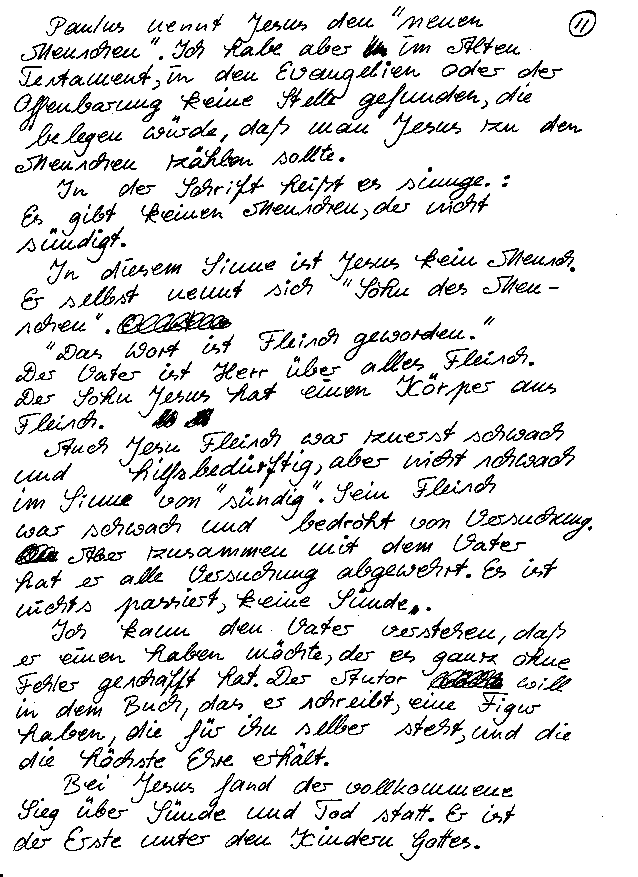 Paulus nennt Jesus den "neuen
Menschen". Ich habe aber im Alten
Testament, in den Evangelien oder der
Offenbarung keine Stelle gefunden, die
belegen würde, daß man Jesus zu den
Menschen zählen sollte.
In der Schrift heißt es sinnge.:
Es gibt keinen Menschen, der nicht
sündigt.
In diesem Sinne ist Jesus kein Mensch.
Er selbst nennt sich "Sohn des Men-
schen".
"Das Wort ist Fleisch geworden."
Der Vater ist Herr über alles Fleisch.
Der Sohn Jesus hat einen Körper aus
Fleisch.
Auch Jesu Fleisch war zuerst schwach
und hilfsbedürftig, aber nicht schwach
im Sinne von "sündig". Sein Fleisch
war schwach und bedroht von Versuchung.
Aber zusammen mit dem Vater
hat er alle Versuchung abgewehrt. Es ist
nichts passiert, keine Sünde.
Ich kann den Vater verstehen, daß
er einen haben möchte, der es ganz ohne
Fehler geschafft hat. Der Autor will
in dem Buch, das er schreibt, eine Figur
haben, die für ihn selber steht, und die
die höchste Ehre erhält.
Bei Jesus fand der vollkommene
Sieg über Sünde und Tod statt. Er ist
der Erste unter den Kindern Gottes.
11